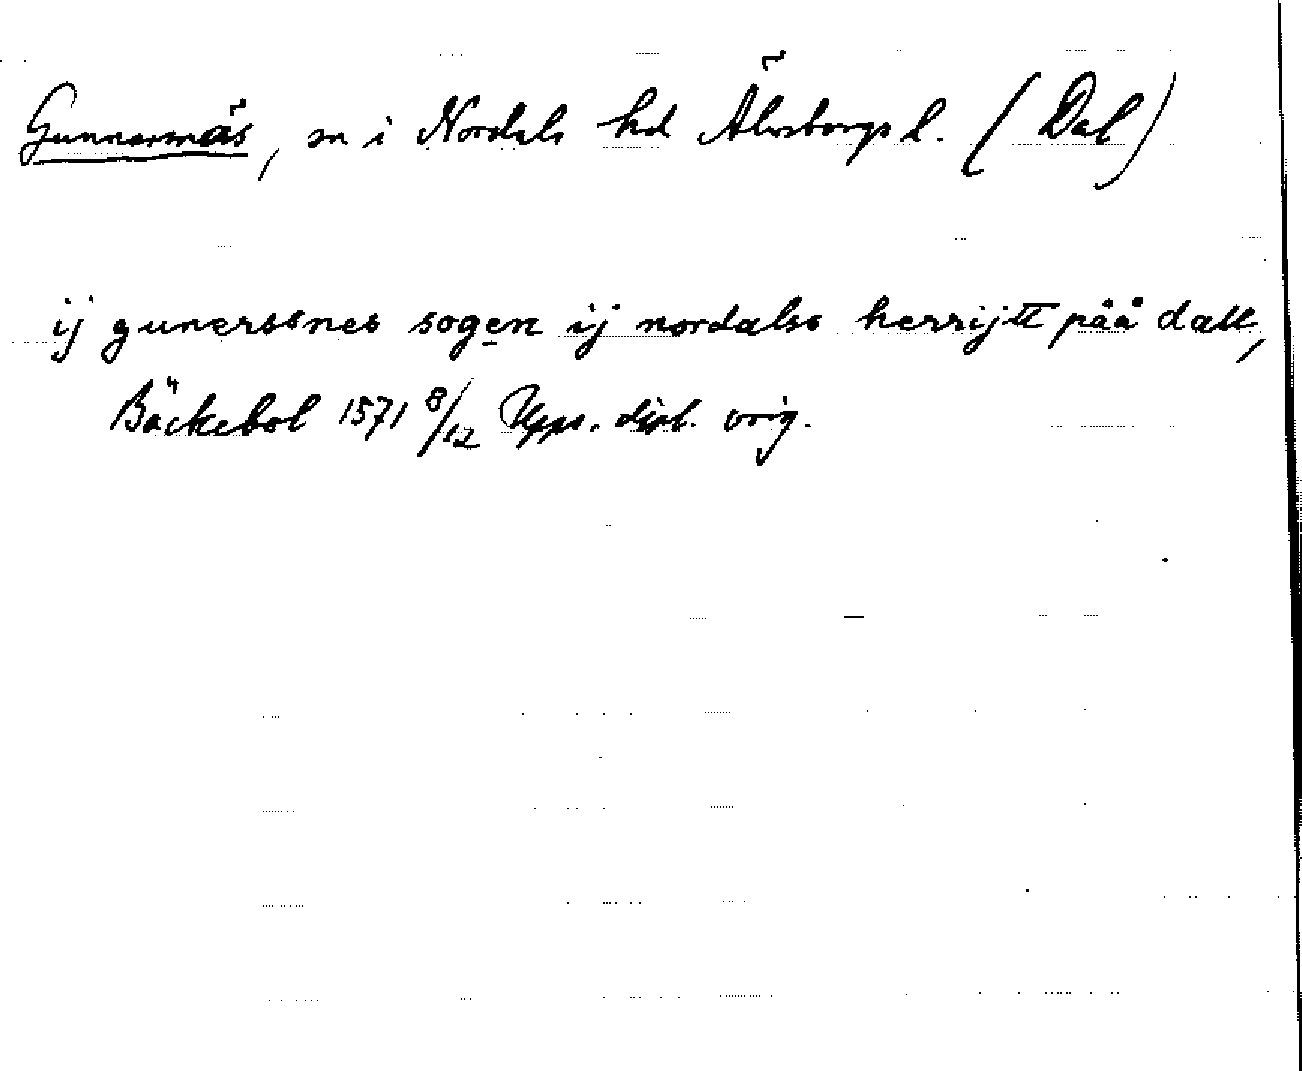 Gunnarsnäs, sn i Nordals hd Älvsborgs l. (Dal)
ij gunerssnes sogen ij nordalss herrijtt påå dall,
Bäckebol 1571 8/12 Upps. dipl. orig.